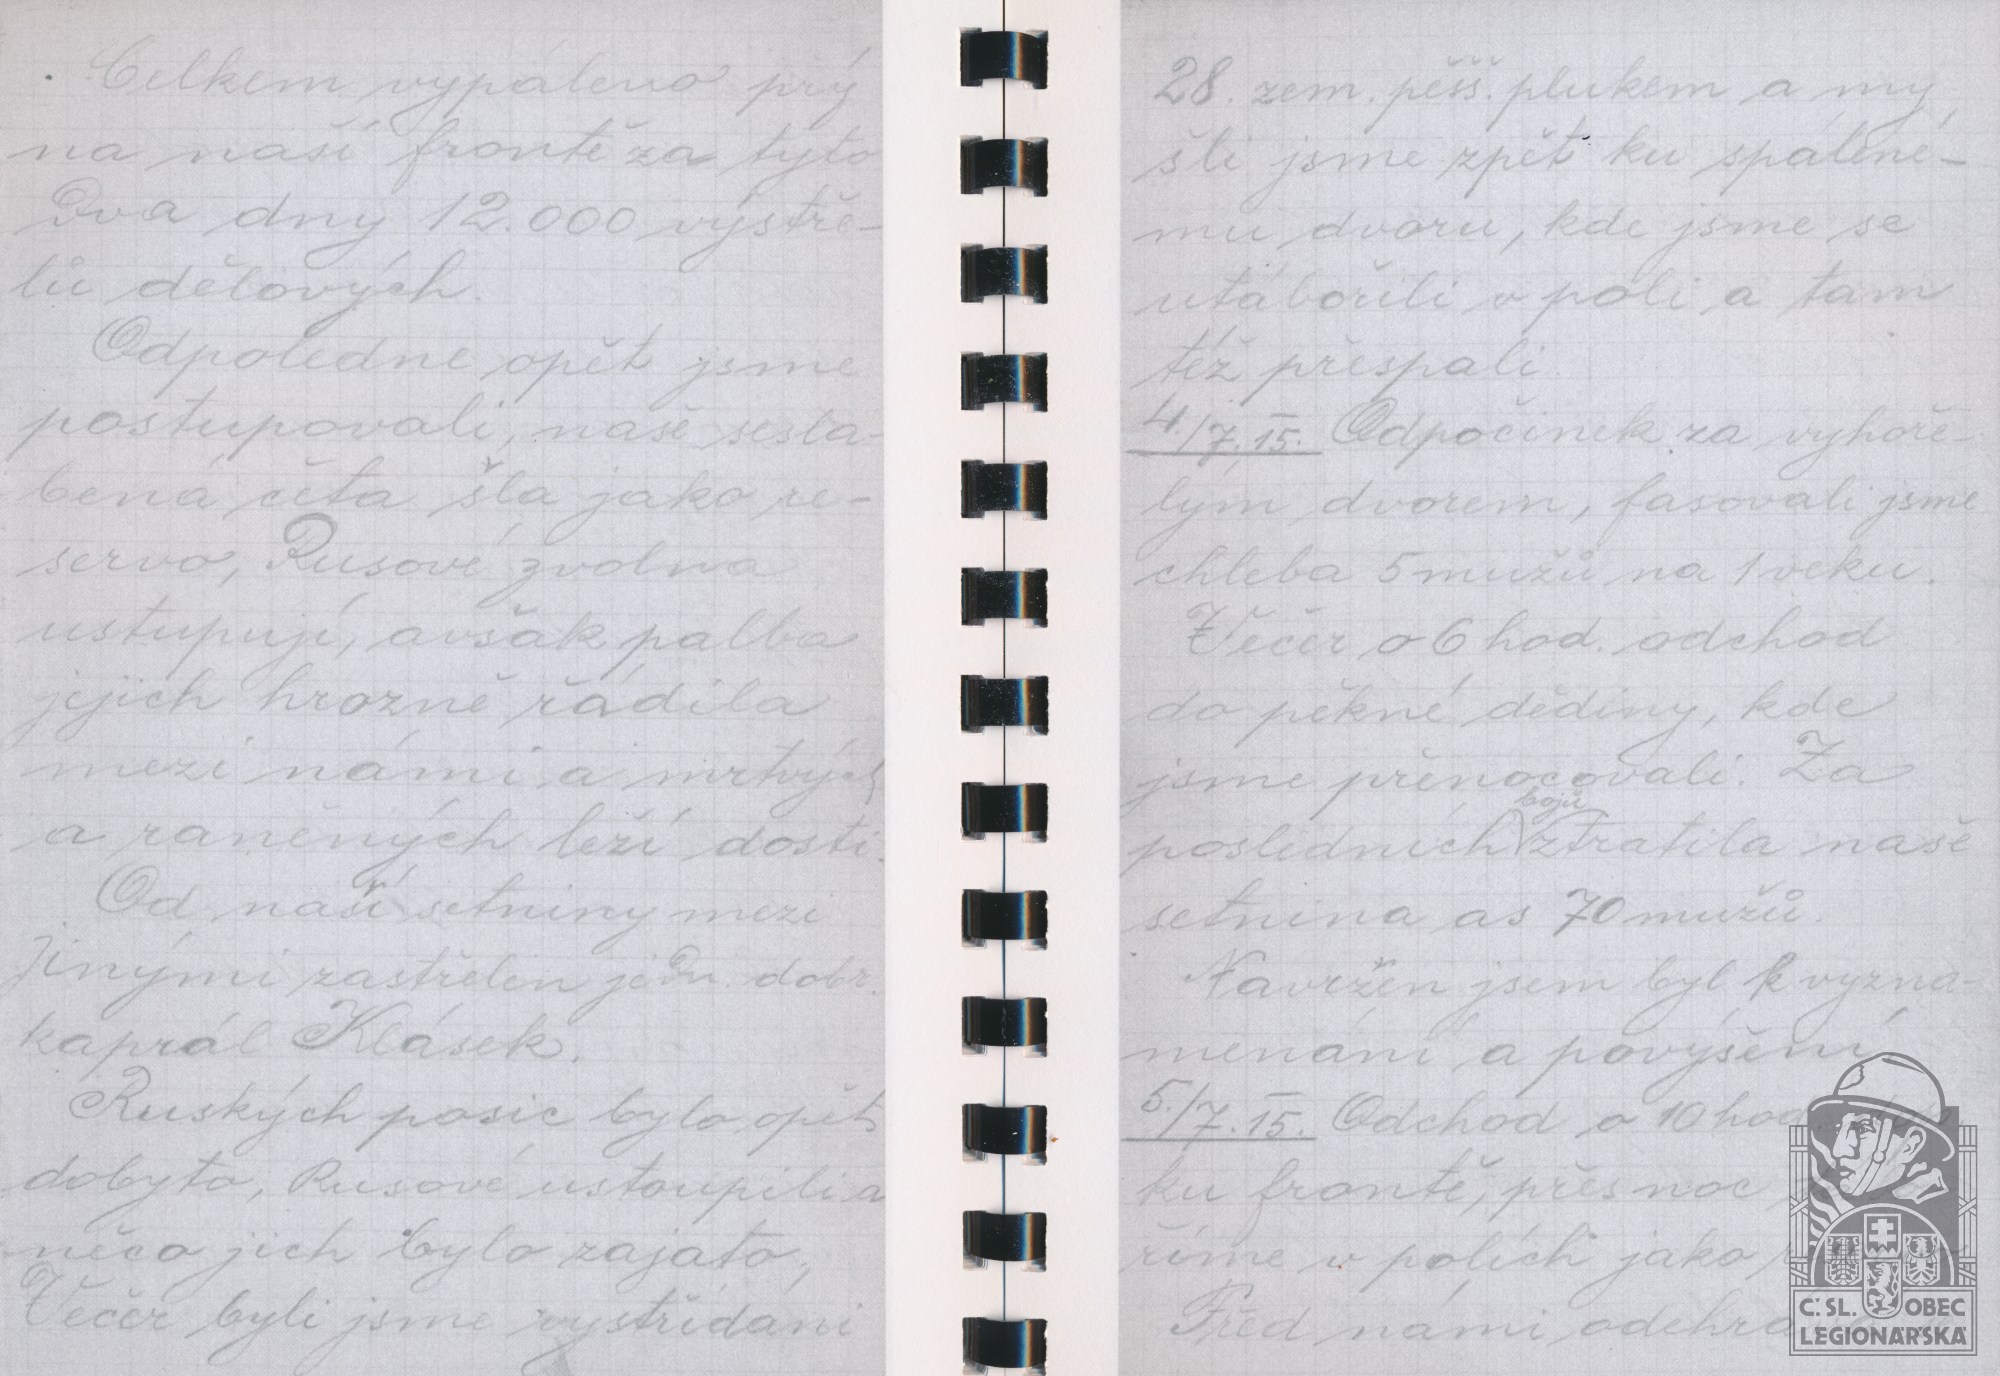 Celkem vypáleno prý
na naší frontě za tyto
dva dny 12.000 výstře-
lů dělových.
Odpoledne opět jsme
postupovali, naše sesla-
bená četa šla jako re-
servo, Rusové zvolna
ustupují, avšak palba
jejich hrozně řádila
mezi námi a mrtvých
a raněných leží dosti.
Od naší setniny mezi
jinými zastřelen je dobr.
kaprál Klásek.
Ruských posic bylo opět
dobyto, Rusové ustoupili a
něco jich bylo zajato,
Večer byli jsme vystřídáni
28. zem. pěš. plukem a my
šli jsme zpět ku spálené-
mu dvoru, kde jsme se
utábořili v poli a tam
též přespali.
4./7. 15. Odpočinek za vyhoře-
lým dvorem, fasovali jsme
chleba 5 mužů na 1 veku.
Večer o 6 hod. odchod
do pěkné dědiny, kde
jsme přenocovali. Za
posledních bojů ztratila naše
setnina as 70 mužů.
Navržen jsem byl k vyzna-
menání a povýšení
5./7. 15. Odchod o 10 hod.
ku frontě, přes noc
říme v polích jako
Před námi
Č.SL. OBEC
LEGIONÁŘSKÁ